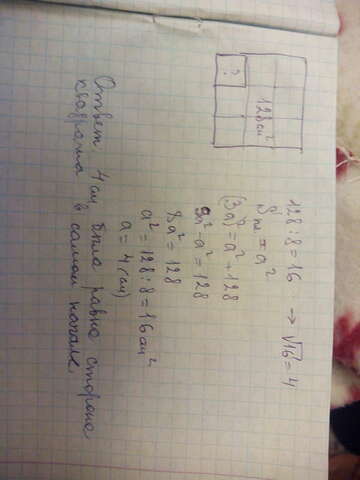 ?
128см²
128:8=16 → √16=4
Sкв=a²
(3a)²=a²+128
9a²-a²=128
8a²=128
a²=128:8=16см²
a=4(см)
Ответ: 4 см была равна сторона
квадрата в самом начале.